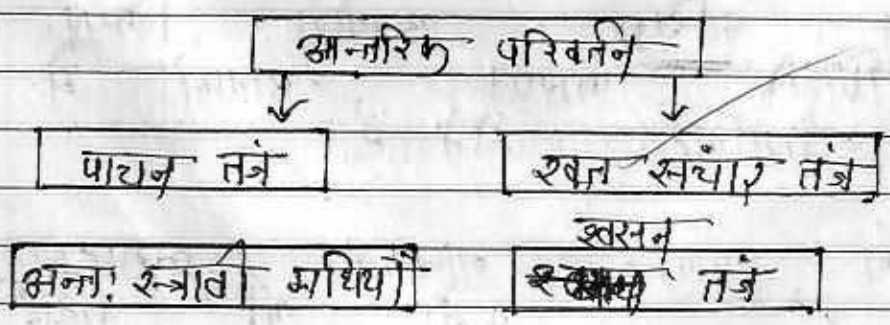 आन्तरिक परिवर्तन
पाचन तंत्र
रक्त संचार तंत्र
अन्तः स्त्रावी ग्रंथियाँ
श्वसन
तंत्र